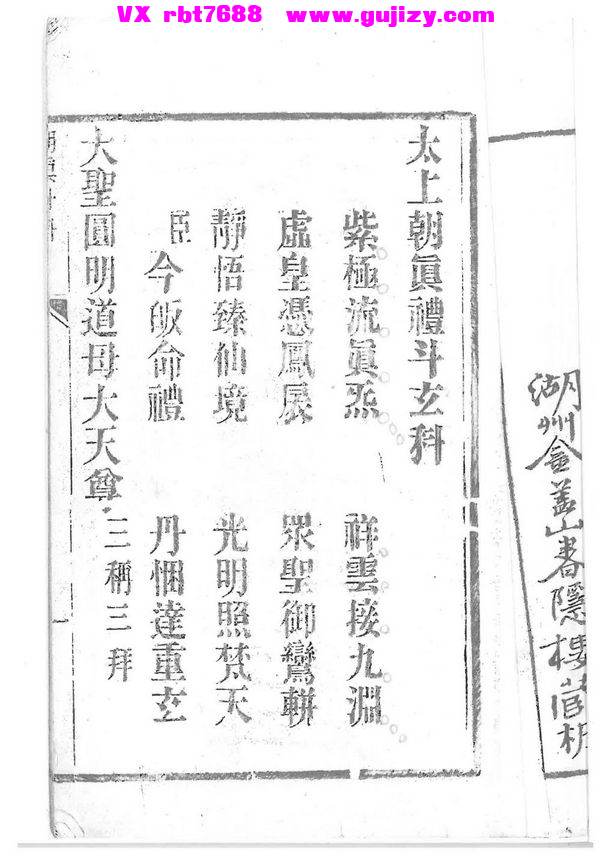 VX rbt7688 www.gujizy.com
湖州金盖山書隱樓藏板
太上朝眞禮斗玄科
紫極流眞炁 祥雲接九淵
虛皇憑鳳扆 眾聖御鸞軿
靜悟臻仙境 光明照梵天
臣今皈命禮 丹悃達重玄
大聖圓明道母大天尊 三稱三拜